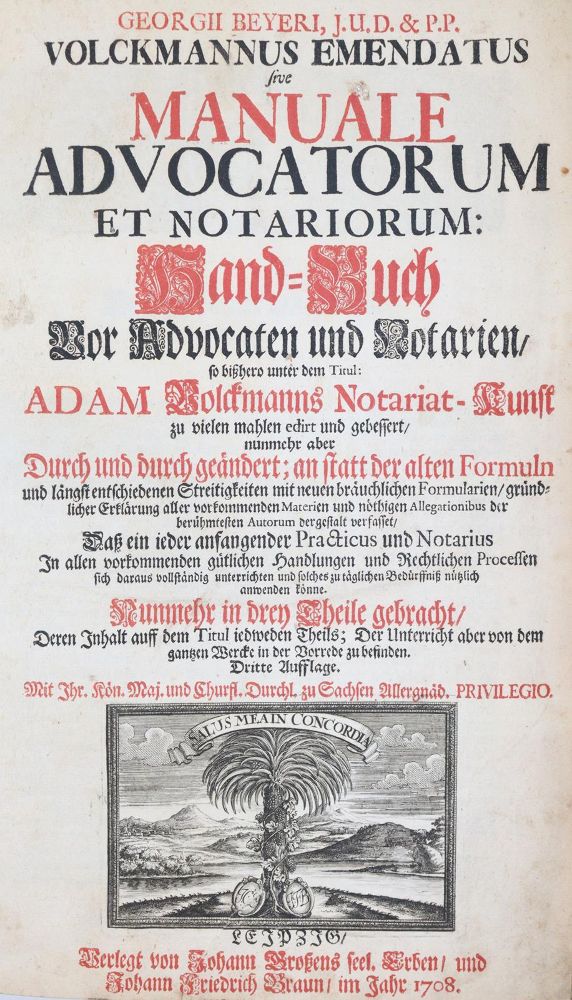 GEORGII BEYERI, J.U.D. & P.P.
VOLCKMANNUS EMENDATUS
sive
MANUALE
ADVOCATORUM
ET NOTARIORUM:
Hand-Buch
Vor Advocaten und Notarien/
so bißhero unter dem Titul:
ADAM Volckmanns Notariat-Kunst
zu vielen mahlen edirt und gebessert/
nunmehr aber
Durch und durch geändert; an statt der alten Formuln
und längst entschiedenen Streitigkeiten mit neuen bräuchlichen Formularien/ gründ-
licher Erklärung aller vorkommenden Materien und nöthigen Allegationibus der
berühmtesten Autorum dergestalt verfasset/
Daß ein ieder anfangender Practicus und Notarius
In allen vorkommenden gütlichen Handlungen und Rechtlichen Processen
sich daraus vollständig unterrichten und solches zu täglichen Bedürffniß nützlich
anwenden könne.
Nunmehr in drey Theile gebracht/
Deren Inhalt auff dem Titul iedweden Theils; Der Unterricht aber von dem
gantzen Wercke in der Vorrede zu befinden.
Dritte Aufflage.
Mit Ihr. Kön. Maj. und Churfl. Durchl. zu Sachsen Allergnäd. PRIVILEGIO.
SALUS MEA IN CONCORDIA
LEIPZIG/
Verlegt von Johann Großens seel. Erben/ und
Johann Friedrich Braun/ im Jahr 1708.